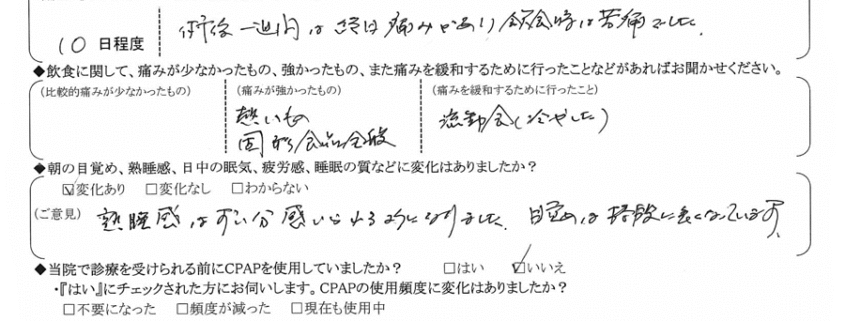 10 日程度 術後一週間は終日痛みがあり飲食時は苦痛でした。
◆飲食に関して、痛みが少なかったもの、強かったもの、また痛みを緩和するために行ったことなどがあればお聞かせください。
(比較的痛みが少なかったもの) (痛みが強かったもの) (痛みを緩和するために行ったこと)
熱いもの 流動食(冷やした)
固形食品全般
◆朝の目覚め、熟睡感、日中の眠気、疲労感、睡眠の質などに変化はありましたか?
☑変化あり □変化なし □わからない
(ご意見)熟睡感はずい分感じられるようになりました。目覚めは格段に良くなっています。
◆当院で診療を受けられる前にCPAPを使用していましたか? □はい ☑いいえ
・『はい』にチェックされた方にお伺いします。CPAPの使用頻度に変化はありましたか?
□不要になった □頻度が減った □現在も使用中